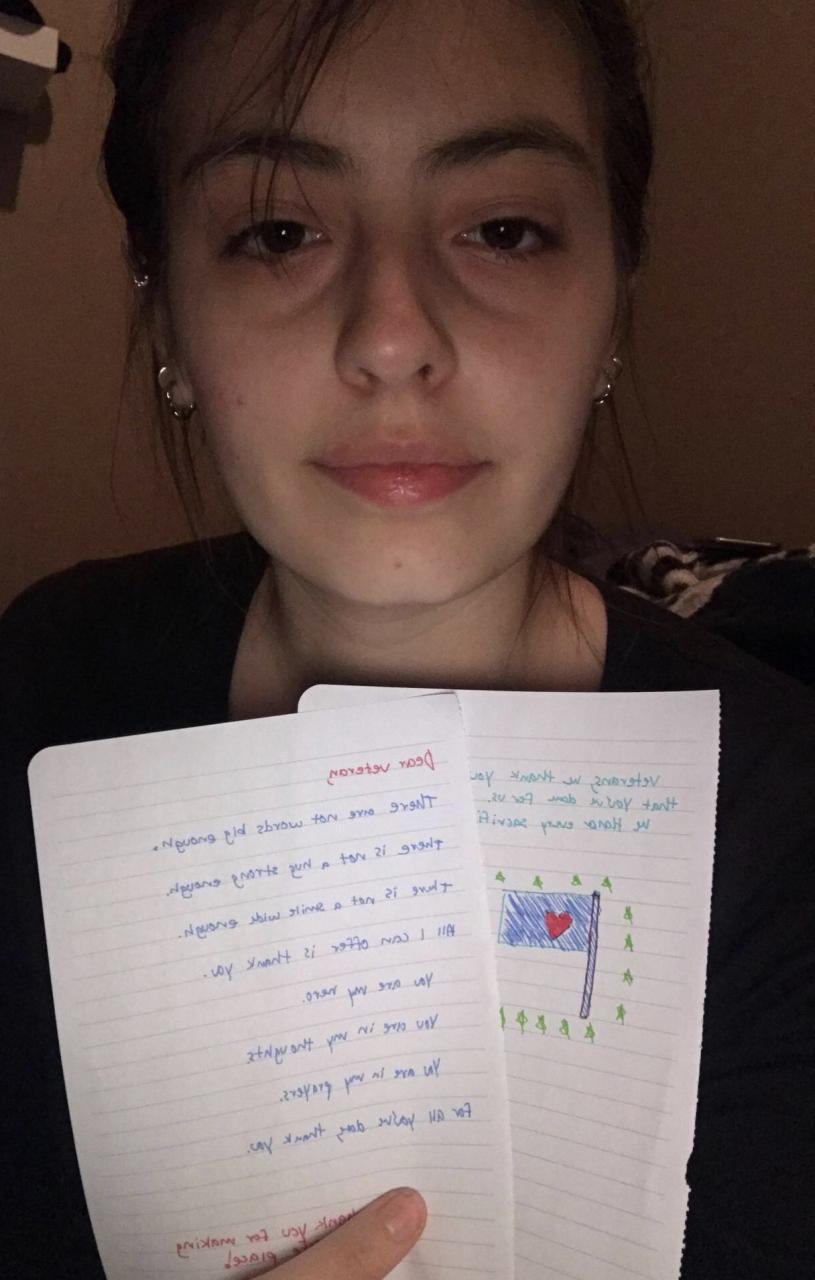 Dear veteran,
There are not words big enough.
there is not a hug strong enough.
there is not a smile wide enough.
All I can offer is thank you.
You are my hero.
You are in my thoughts
You are in my prayers.
For all you've done, thank you.
thank you for making
place!
Veterans, we thank you
that you've done for us.
We Honor every sacrifi